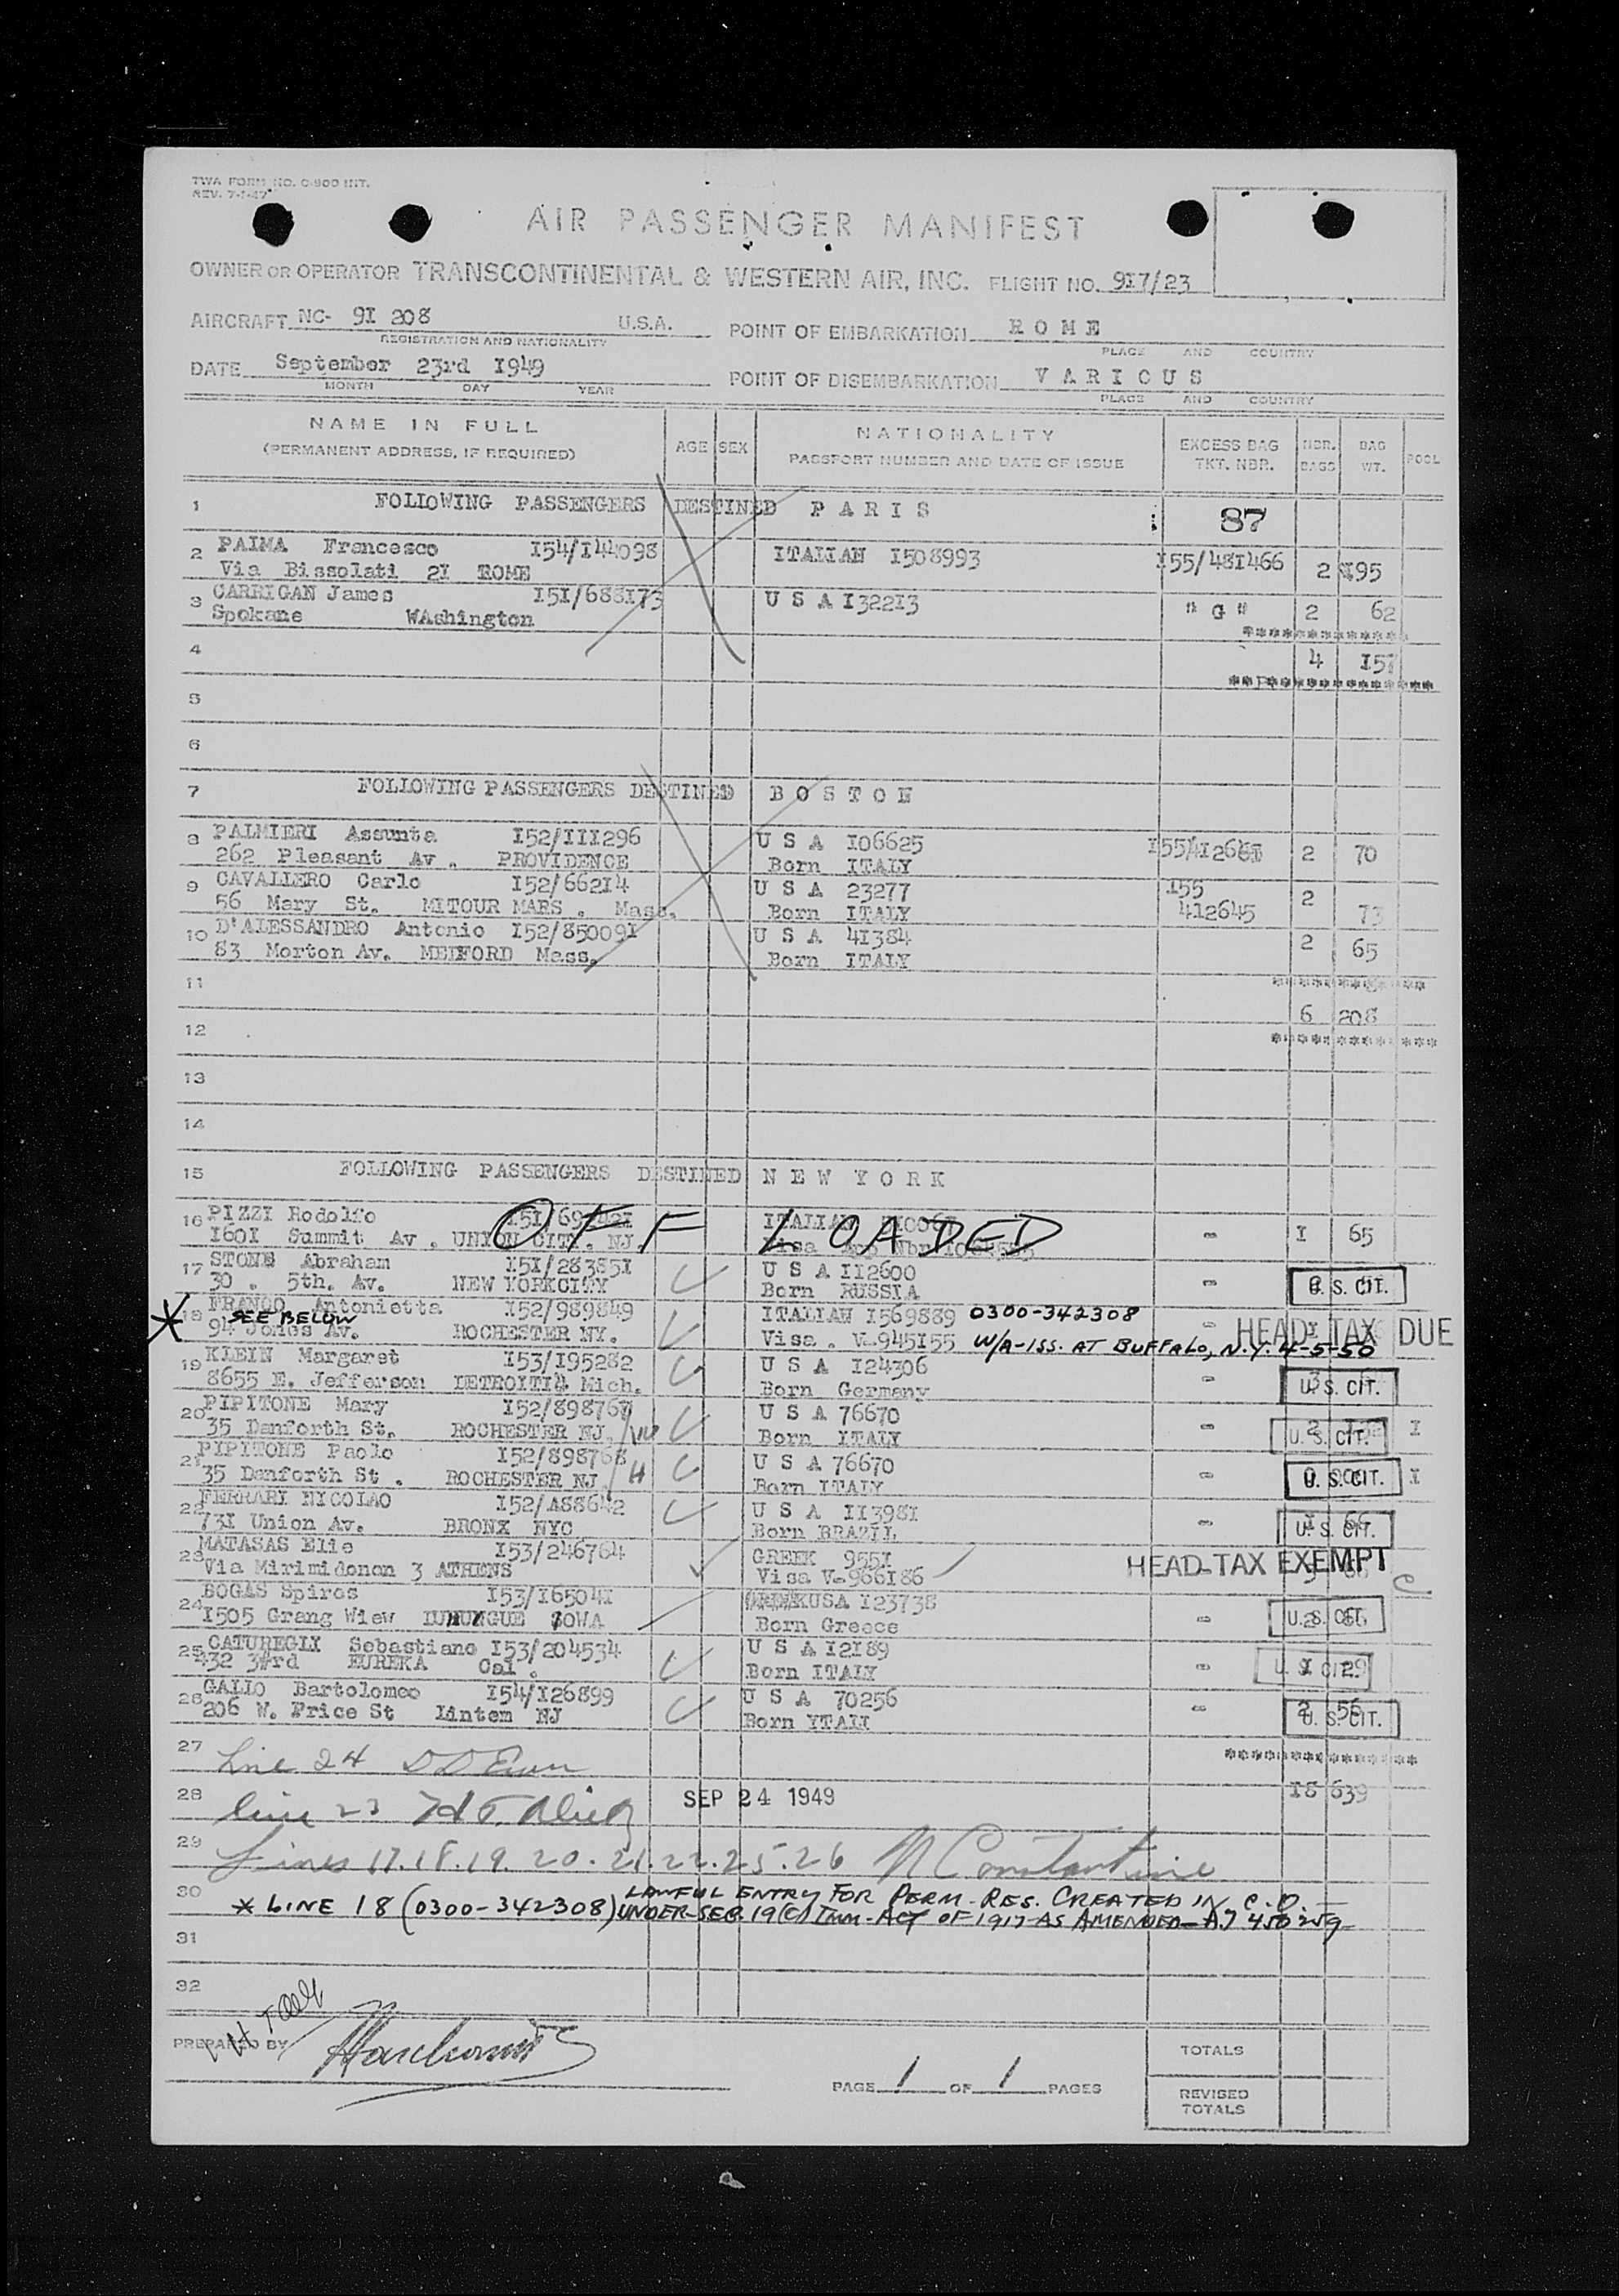 TWA FORM NO. O-900 INT.
REV. 7-1-47
AIR PASSENGER MANIFEST
OWNER OR OPERATOR TRANSCONTINENTAL & WESTERN AIR, INC. FLIGHT NO. 9I7/23
AIRCRAFT NC- 9I 208 U.S.A. POINT OF EMBARKATION R O M E
REGISTRATION AND NATIONALITY PLACE AND COUNTRY
DATE September 23rd I949 POINT OF DISEMBARKATION V A R I O U S
MONTH DAY YEAR PLACE AND COUNTRY
NAME IN FULL NATIONALITY
(PERMANENT ADDRESS, IF REQUIRED) AGE SEX PASSPORT NUMBER AND DATE OF ISSUE EXCESS BAG TKT. NBR. NBR. BAGS BAG WT. POOL
1 FOLLOWING PASSENGERS DESTINED P A R I S 87
2 PAIMA Francesco I54/I44098 ITALIAN I508993 I55/48I466 2 195
Via Bissolati 2I ROME
3 CARRIGAN James I5I/688I73 U S A I322I3 " G " 2 62
Spokane WAshington
**************
4 4 I57
5
6
7 FOLLOWING PASSENGERS DESTINED B O S T O N
8 PALMIERI Assunta I52/III296 U S A I06625 2 70
262 Pleasant Av . PROVIDENCE Born ITALY
9 CAVALLERO Carlo I52/662I4 U S A 23277 I55 2 73
56 Mary St. MITOUR MARS . Mass. Born ITALY 4I2645
10 D'ALESSANDRO Antonio I52/85009I U S A 4I384 2 65
83 Morton Av. MEDFORD Mass. Born ITALY
11
6 208
12
13
14
15 FOLLOWING PASSENGERS DESTINED N E W Y O R K
16 PIZZI Rodolfo ITALIAN I 65
I60I Summit Av . UNION CITY. NJ Visa
OFF LOADED
17 STONE Abraham I5I/28385I U S A II2600 U. S. CIT.
30 . 5th. Av. NEW YORKCITY Born RUSSIA
* 18 FRANCO Antonietta I52/989849 ITALIAN I569889 0300-342308
SEE BELOW
94 Jones Av. ROCHESTER NY. Visa . V-945I55 W/A-ISS. AT BUFFALO, N.Y. 4-5-50 HEAD TAX DUE
19 KLEIN Margaret I53/I95282 U S A I24306
8655 E. Jefferson DETROITI4 Mich. Born Germany U. S. CIT.
20 PIPITONE Mary I52/898767 U S A 76670 I
35 Danforth St. ROCHESTER NJ. Born ITALY U. S. CIT.
21 PIPITONE Paolo I52/898768 U S A 76670
35 Danforth St . ROCHESTER NJ H Born ITALY U. S. CIT. I
22 FERRARI NICOLAO I52/A88642 U S A II398I
73I Union Av. BRONX NYC Born BRAZIL U. S. CIT.
23 MATASAS Elie I53/246764 GREEK 955I
Via Mirimidonon 3 ATHENS Visa V-966I86 HEAD TAX EXEMPT
24 BOGAS Spiros I53/I6504I USA I23738
I505 Grang Wiew IOWA Born Greece U. S. CIT.
25 CATUREGLI Sebastiano I53/204534 U S A I2I89
432 3#rd EUREKA Cal . Born ITALY U. S. CIT.
26 GALLO Bartolomeo I54/I26899 U S A 70256 2 56
206 W. Price St Lintem NJ Born YTALI U. S. CIT.
27 Line 24
28 line 23 SEP 24 1949 I8 639
29 Lines 17.18.19. 20. 21. 22. 25. 26 N Constantine
30 LAWFUL ENTRY FOR PERM. RES. CREATED IN C.O.
* LINE 18 (0300-342308) UNDER SEC. 19(c) IMM. ACT OF 1917 AS AMENDED
31
32
PREPARED BY
PAGE 1 OF 1 PAGES
TOTALS
REVISED TOTALS